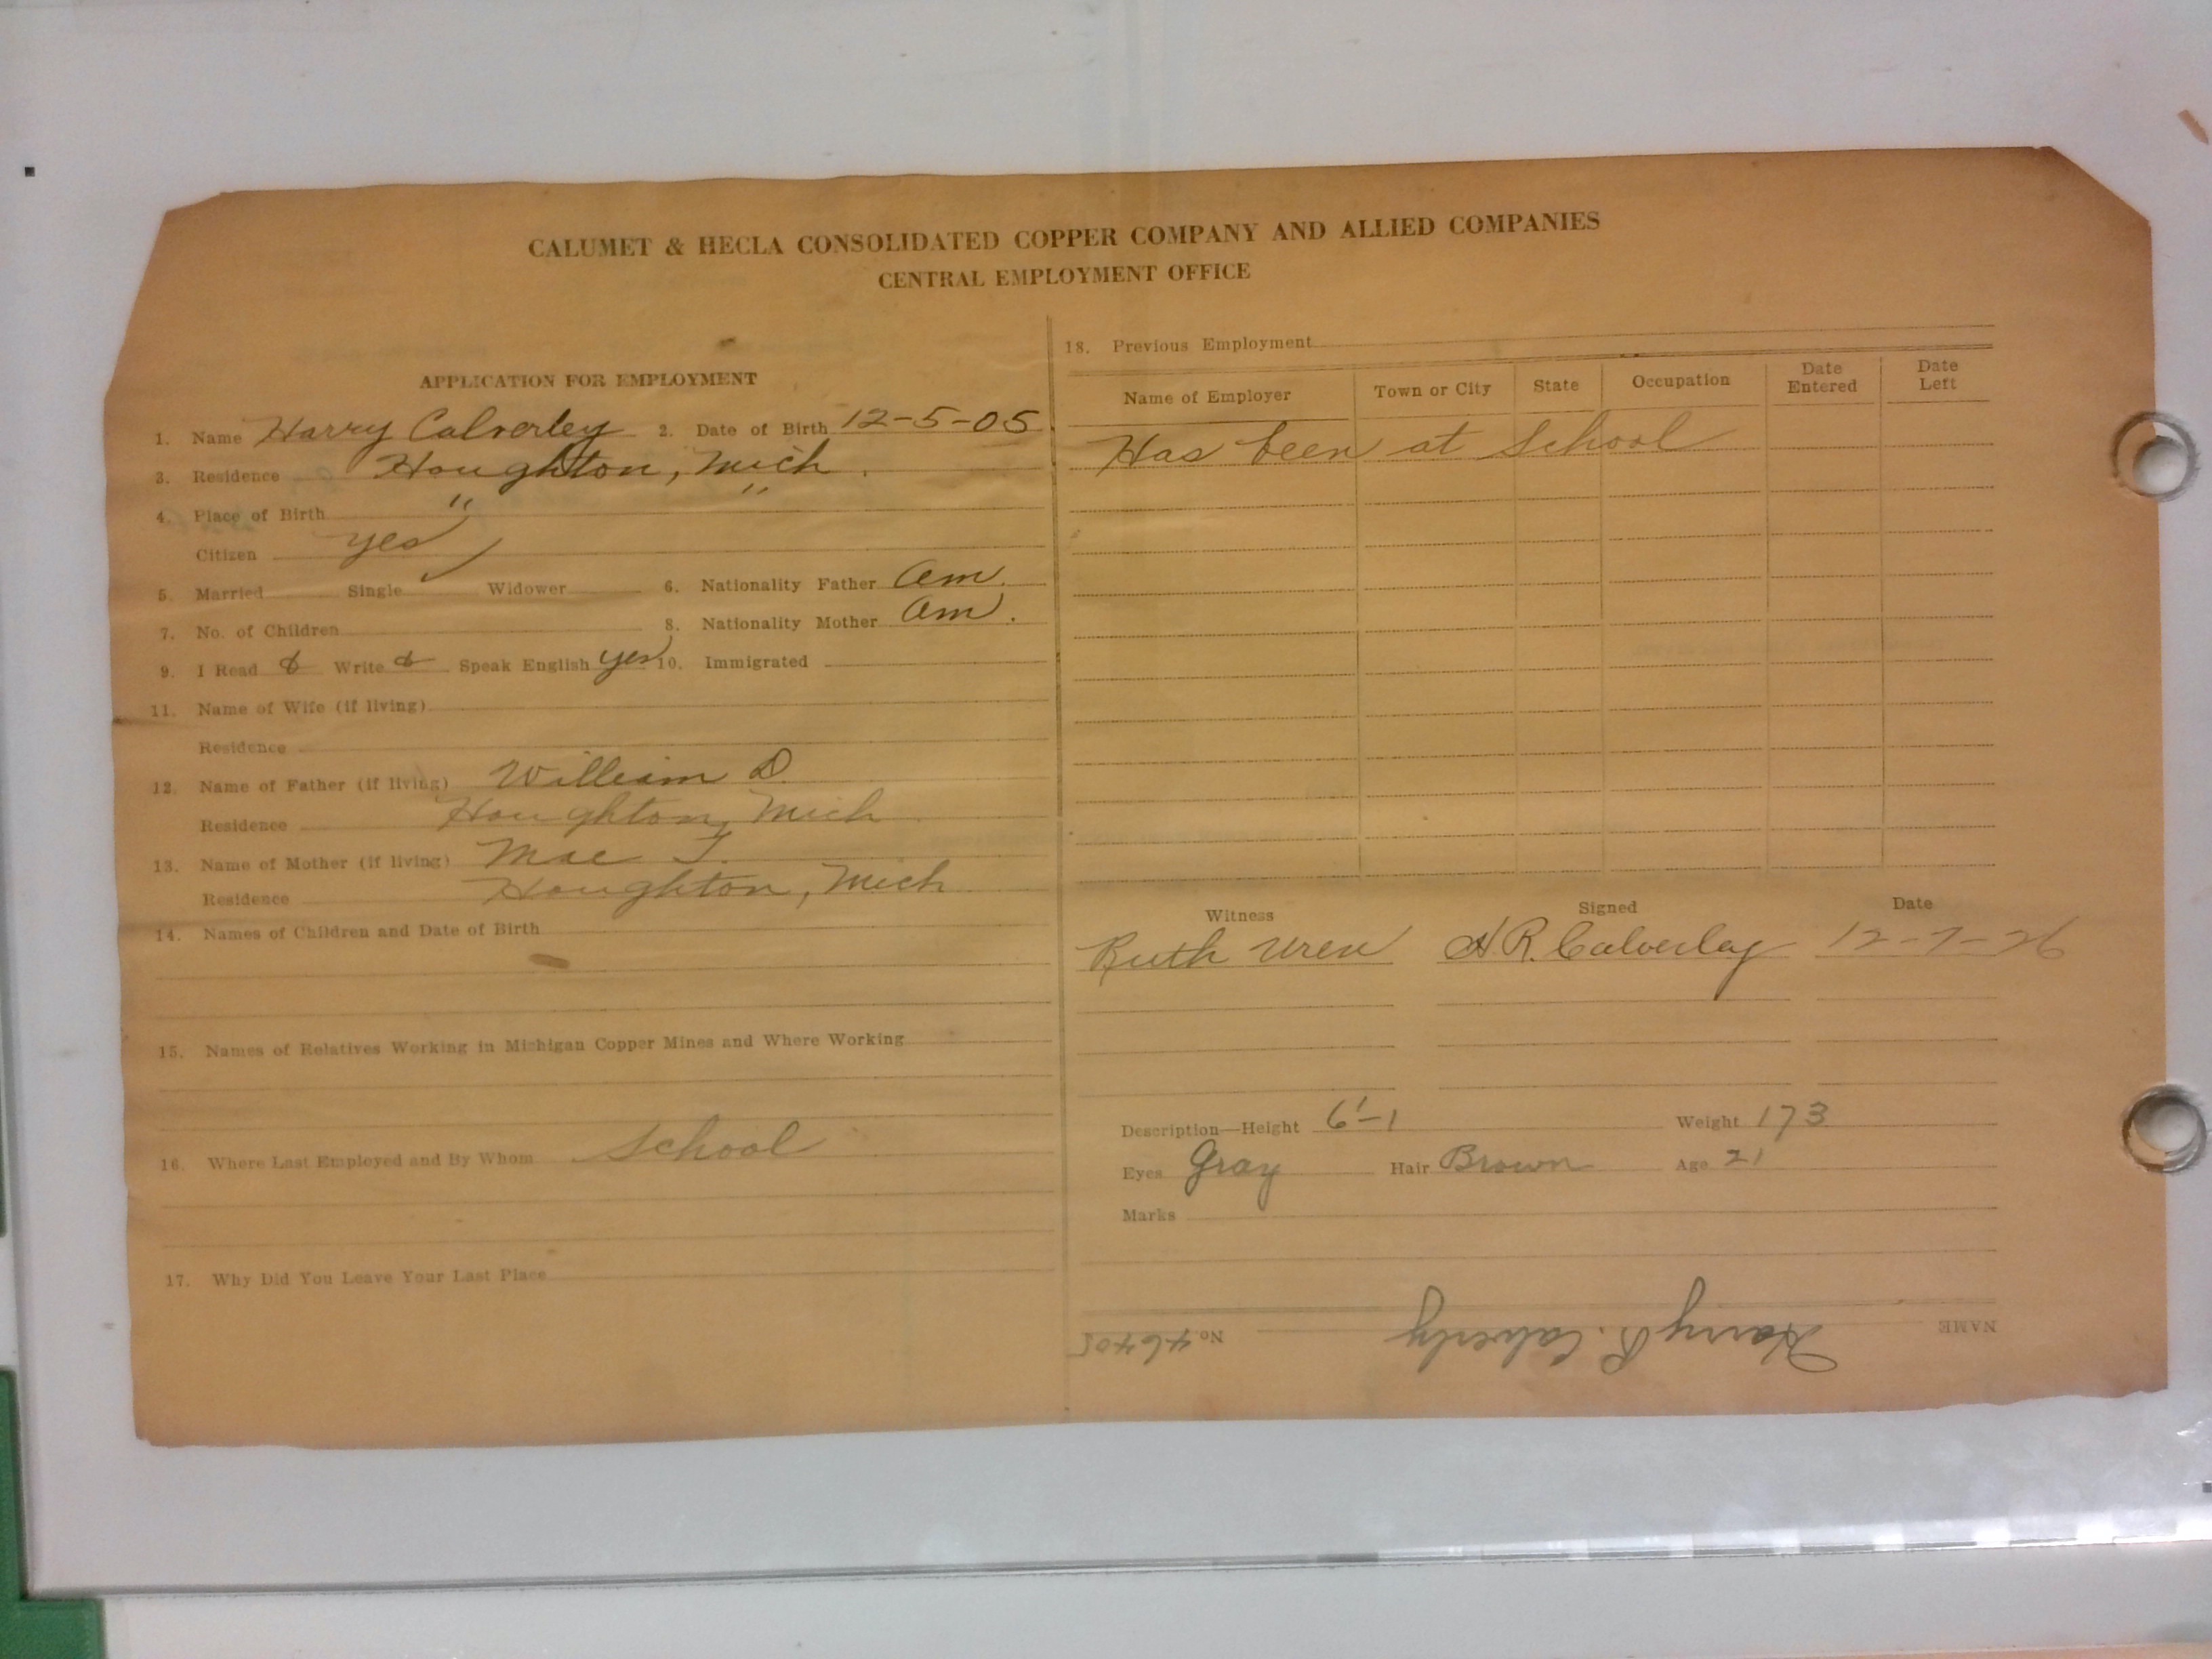 CALUMET & HECLA CONSOLIDATED COPPER COMPANY AND ALLIED COMPANIES
CENTRAL EMPLOYMENT OFFICE
APPLICATION FOR EMPLOYMENT
1. Name Harry Calverley 2. Date of Birth 12-5-05
3. Residence Houghton, Mich.
4. Place of Birth " "
Citizen yes
5. Married Single ✓ Widower 6. Nationality Father Am.
7. No. of Children 8. Nationality Mother Am.
9. I Read & Write & Speak English yes 10. Immigrated
11. Name of Wife (if living)
Residence
12. Name of Father (if living) William D.
Residence Houghton, Mich
13. Name of Mother (if living) Mae T.
Residence Houghton, Mich
14. Names of Children and Date of Birth
15. Names of Relatives Working in Michigan Copper Mines and Where Working
16. Where Last Employed and By Whom School
17. Why Did You Leave Your Last Place
18. Previous Employment
Name of Employer Town or City State Occupation Date Entered Date Left
Has been at School
Witness Signed Date
Ruth Uren H R. Calverley 12-7-26
Description—Height 6'-1 Weight 173
Eyes Gray Hair Brown Age 21
Marks
NAME Harry R. Calverly No. 46405